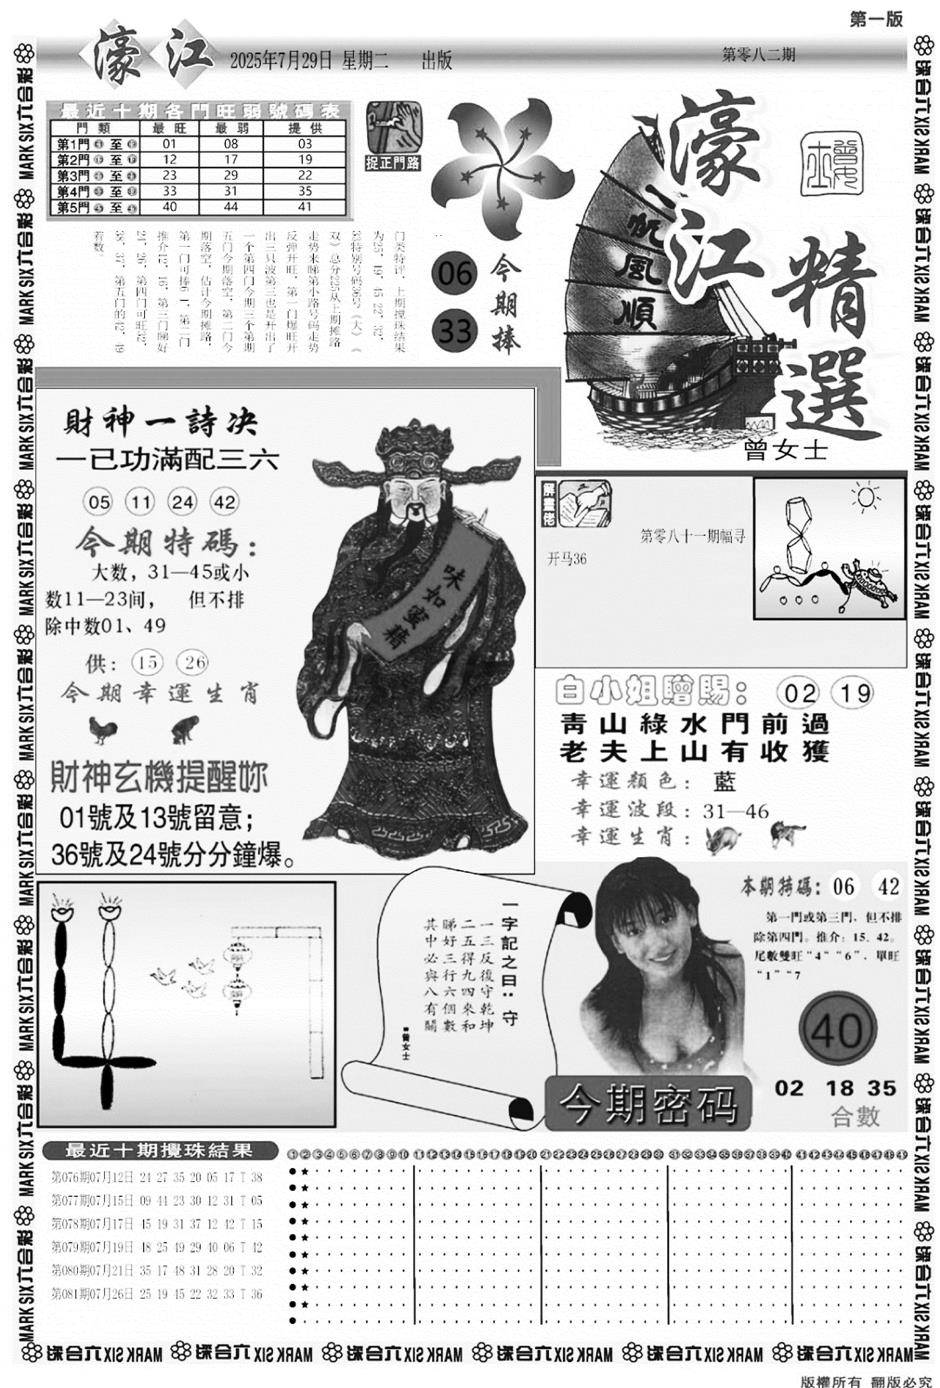 第一版
濠江
2025年7月29日 星期二 出版
第零八二期
最近十期各門旺弱號碼表
門類 最旺 最弱 提供
第1門 至 01 08 03
第2門 至 12 17 19
第3門 至 23 29 22
第4門 至 33 31 35
第5門 至 40 44 41
捉正門路
门类特评，上期搅珠结果
为25、19、45、22、32、
33特别号码36号（大）（
双）总分212从上期摊路
走势来睇第小路号码走势
反弹开旺，第一门爆旺开
出三只波第三也是开出了
一个第四门今期三个第期
五门今期落空，第二门今
期落空，估计今期摊路，
第一门可捧6、1，第二门
推介12、16，第三门睇好
21、26，第四门可旺32、
38、37，第五门的42、49
着数。
06
33
今期捧
一帆風順
濠江
精選
曾女士
財神一詩决
一已功滿配三六
05 11 24 42
今期特碼：
大数，31—45或小
数11—23间， 但不排
除中数01、49
供：15 26
今期幸運生肖
財神玄機提醒妳
01號及13號留意；
36號及24號分分鐘爆。
味如蜜糖
解畫佬
第零八十一期幅寻
开马36
白小姐贈賜：02 19
青山綠水門前過
老夫上山有收獲
幸運顏色：藍
幸運波段：31—46
幸運生肖：
一字記之曰：守
一三反復守乾坤
二五得九四來和
睇好三行六個數
其中必與八有關
曾女士
本期特碼：06 42
第一門或第三門，但不排
除第四門。推介：15．42。
尾數雙旺“4”“6”，單旺
“1”“7
40
今期密码
02 18 35
合數
最近十期攪珠結果
第076期07月12日 24 27 35 20 05 17 T 38
第077期07月15日 09 44 23 30 12 31 T 05
第078期07月17日 45 19 31 37 12 42 T 15
第079期07月19日 48 25 49 29 40 06 T 42
第080期07月21日 35 17 48 31 28 20 T 32
第081期07月26日 25 19 45 22 32 33 T 36
MARK SIX六合彩
版權所有 翻版必究